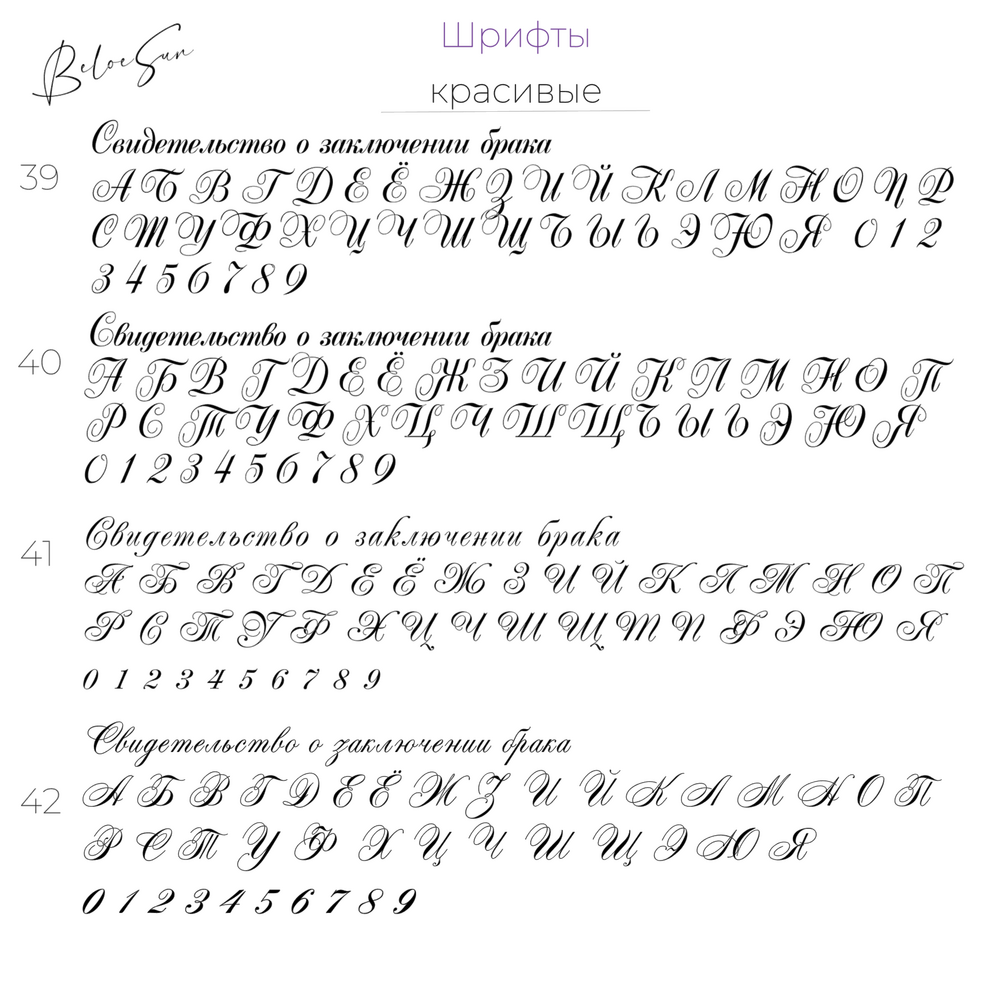 BeloeSun
Шрифты
красивые
39
Свидетельство о заключении брака
А Б В Г Д Е Ё Ж З И Й К Л М Н О П Р
С Т У Ф Х Ц Ч Ш Щ Ъ Ы Ь Э Ю Я 0 1 2
3 4 5 6 7 8 9
40
Свидетельство о заключении брака
А Б В Г Д Е Ё Ж З И Й К Л М Н О П
Р С Т У Ф Х Ц Ч Ш Щ Ъ Ы Ь Э Ю Я
0 1 2 3 4 5 6 7 8 9
41
Свидетельство о заключении брака
А Б В Г Д Е Ё Ж З И Й К Л М Н О П
Р С Т У Ф Х Ц Ч Ш Щ Т П Ф Э Ю Я
0 1 2 3 4 5 6 7 8 9
42
Свидетельство о заключении брака
А Б В Г Д Е Ё Ж З И Й К Л М Н О П
Р С Т У Ф Х Ц Ч Ш Щ Э Ю Я
0 1 2 3 4 5 6 7 8 9